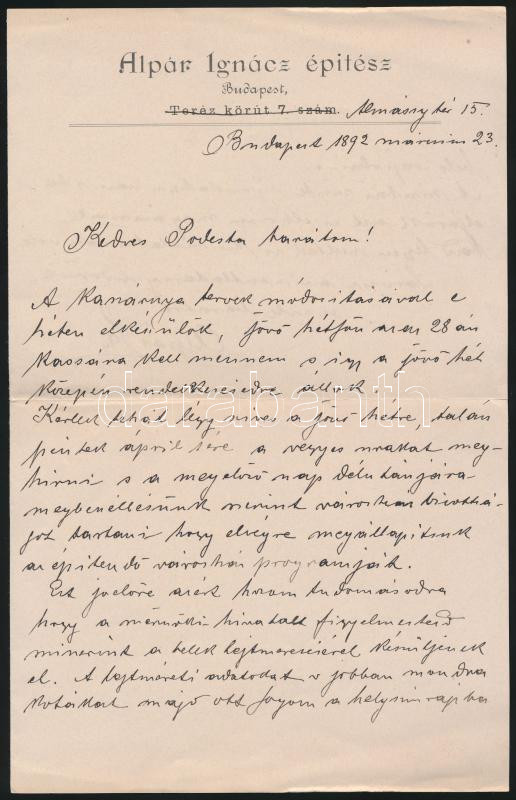 Alpár Ignácz épitész
Budapest,
Teréz körút 7. szám. Almássy tér 15.
Budapest 1892 márczius 23.
Kedves Podesta barátom!
A kaszárnya tervek módositásával e
héten elkészülök, jövő hétfőn azaz 28 án
Kassára kell mennem s igy a jövő hét
közepén rendelkezésedre állok.
Kérlek tehát légy szives a jövő hétre, talán
péntek april 1ére a vegyes urakat meg-
hivni s a megelőző nap délutánjára
megbeszélésünk szerint városházi bizottsá-
got tartani hogy elvégre megállapitsuk
az épitendő városház programját.
Ezt jóelőre azért hozom tudomásodra
hogy a mérnöki hivatalt figyelmeztesd
miszerint a telek lejtmérésével készüljenek
el. A lejtméreti adatokat v jobban mondva
kótákat majd ott fogom a helyszinrajzba
databanth